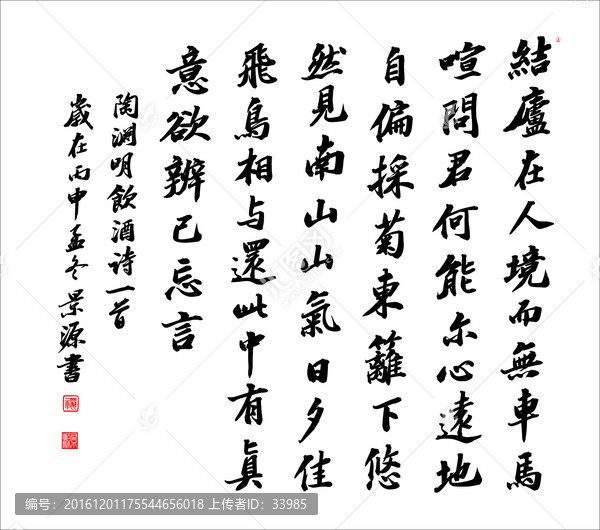 結廬在人境而無車馬
喧問君何能尔心遠地
自偏採菊東籬下悠
然見南山山氣日夕佳
飛鳥相与還此中有眞
意欲辨已忘言
陶渊明飲酒诗一首
歲在丙申孟冬景源書
编号：20161201175544656018 上传者ID：33985